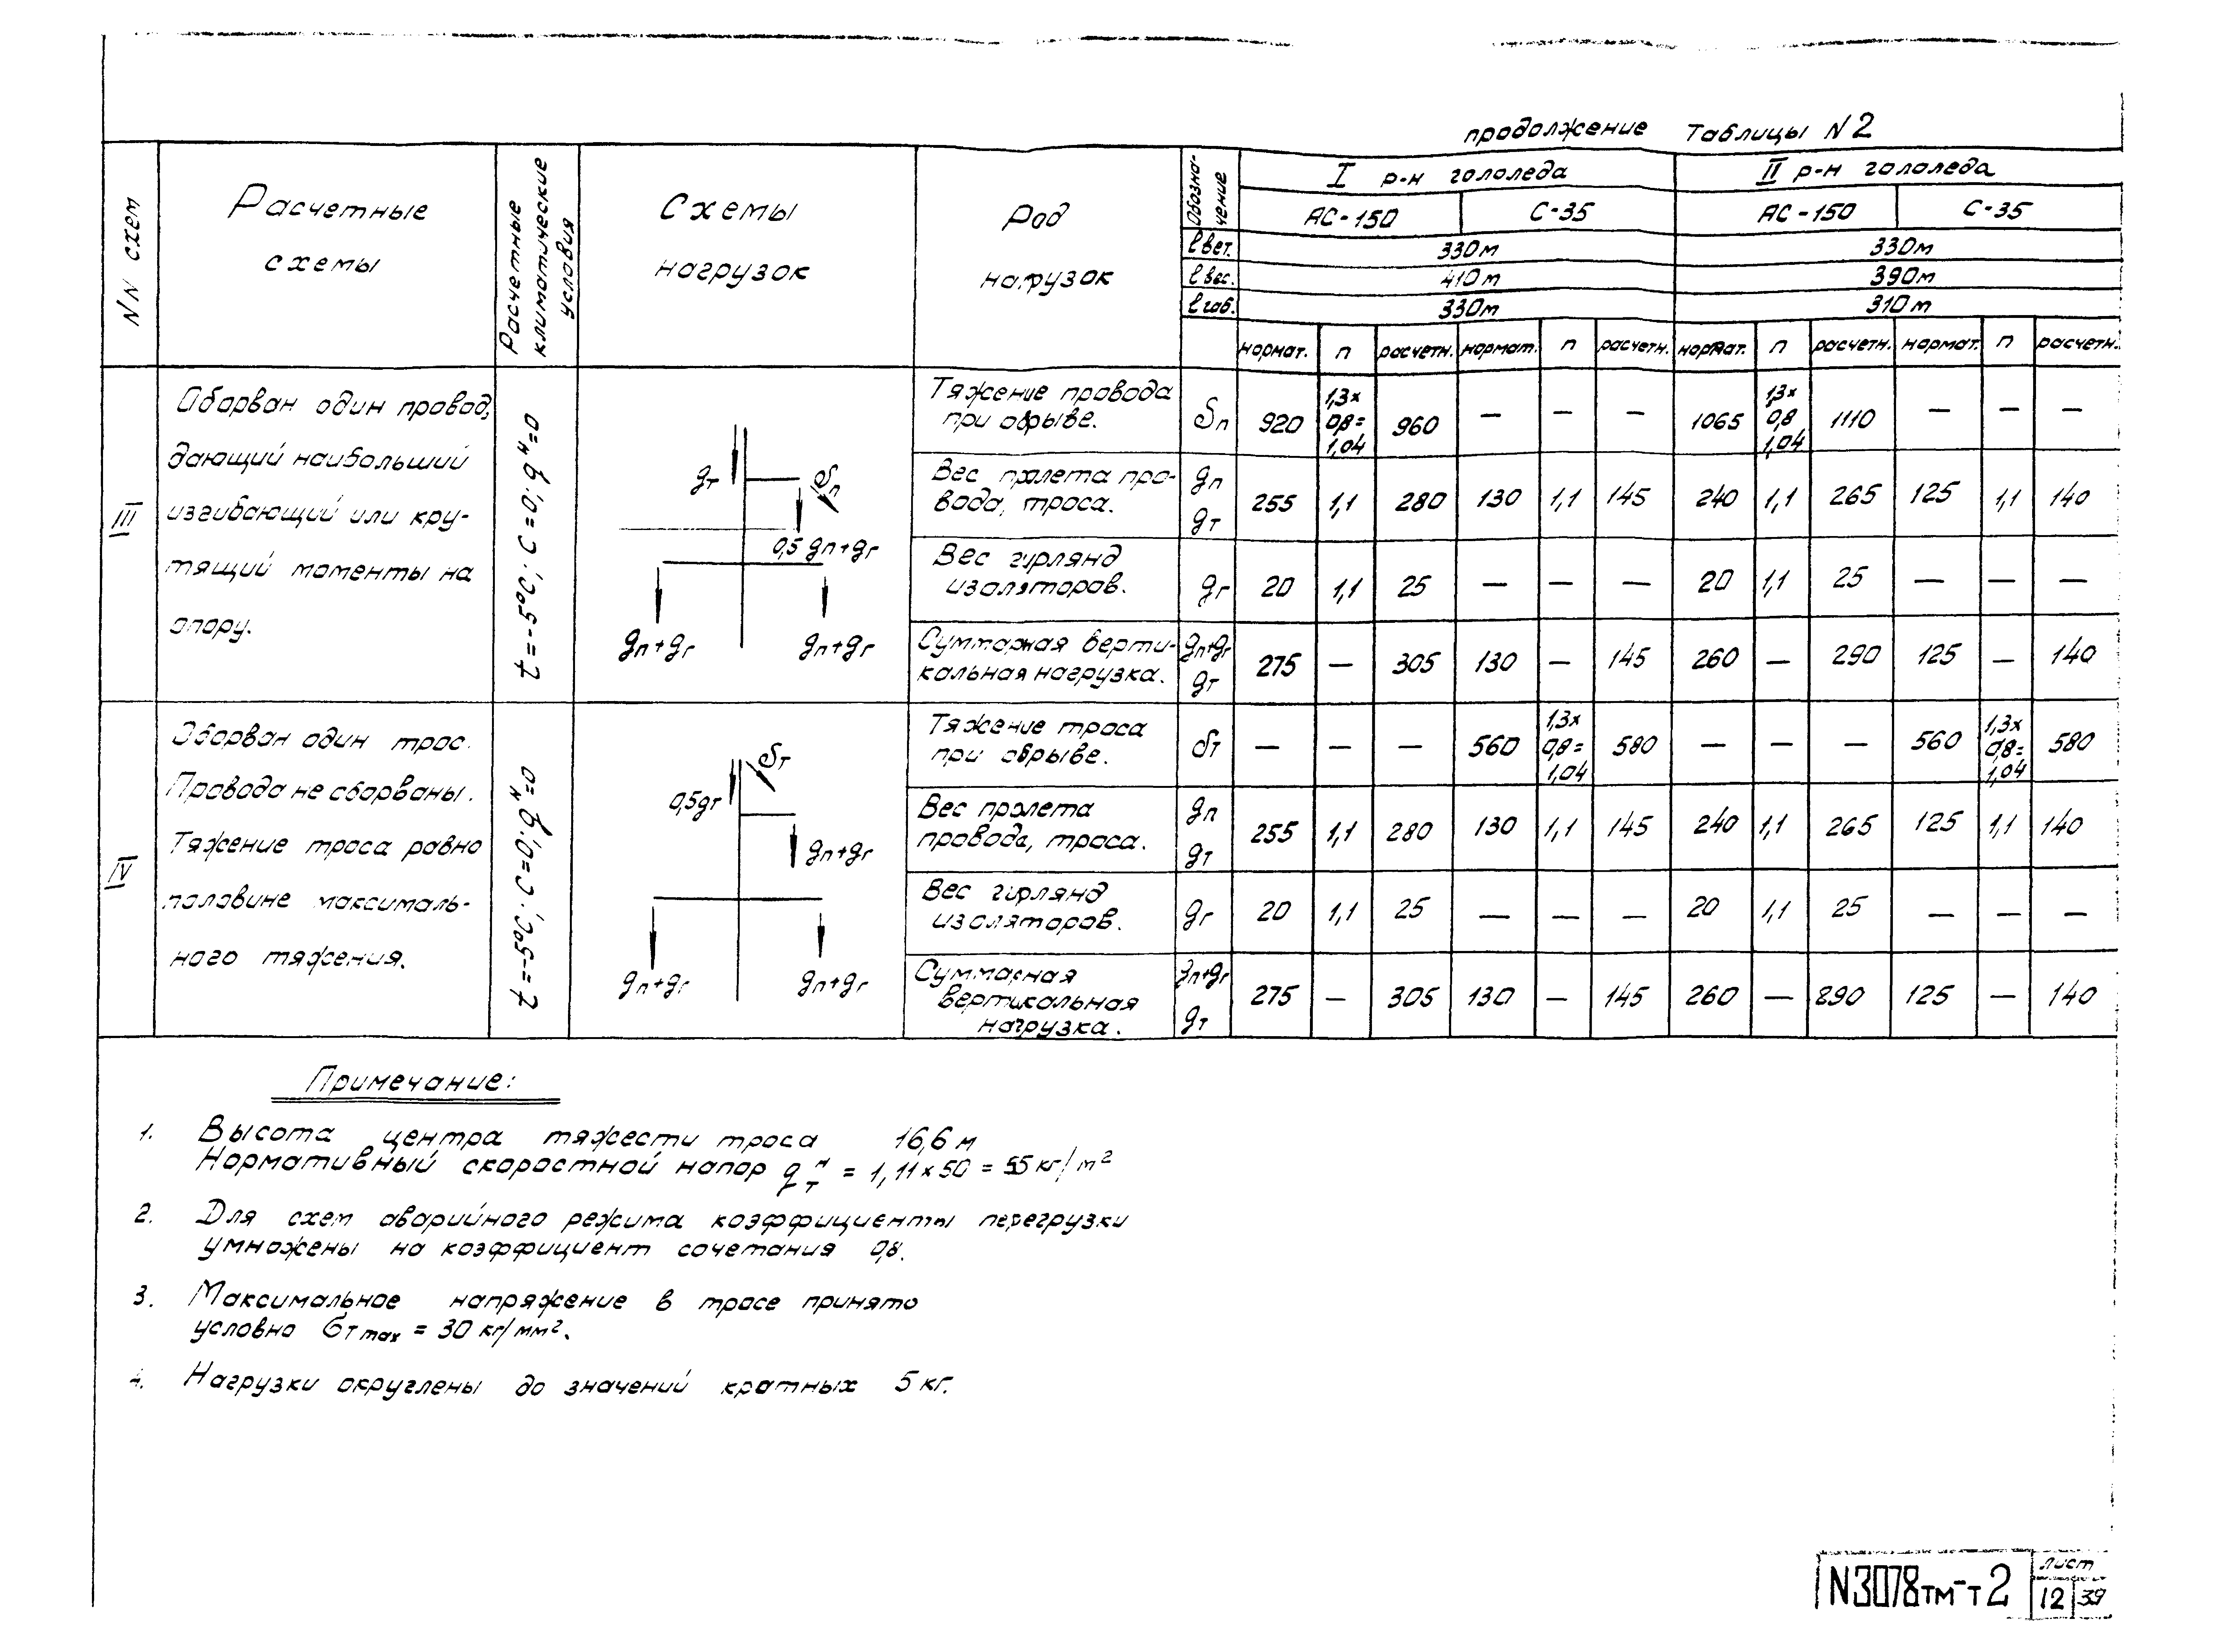 продолжение Таблицы N2
NN схем
Расчетные
схемы
Расчетные
климатические
условия
Схемы
нагрузок
Род
нагрузок
Обозна-
чение
I р-н гололеда
II р-н гололеда
АС-150 С-35 АС-150 С-35
ℓвет. 330м 330м
ℓвес. 410м 390м
ℓгаб. 330м 310м
нормат. п расчетн. нормат. п расчетн. нормат. п расчетн. нормат. п расчетн.
III
Оборван один провод,
дающий наибольший
изгибающий или кру-
тящий моменты на
опору.
t=-5°C; C=0; qᴴ=0
gт
Sп
0,5 gп+gг
gп+gг gп+gг
Тяжение провода
при обрыве.
Sп 920 1,3х 0,8= 1,04 960 — — — 1065 1,3х 0,8 1,04 1110 — — —
Вес пролета про-
вода, троса.
gп
gт
255 1,1 280 130 1,1 145 240 1,1 265 125 1,1 140
Вес гирлянд
изоляторов.
gг 20 1,1 25 — — — 20 1,1 25 — — —
Суммарная верти-
кальная нагрузка.
gп+gг
gт
275 — 305 130 — 145 260 — 290 125 — 140
IV
Оборван один трос.
Провода не оборваны.
Тяжение троса равно
половине максималь-
ного тяжения.
t=-5°C; C=0; qᴴ=0
Sт
0,5gт
gп+gг
gп+gг gп+gг
Тяжение троса
при обрыве.
Sт — — — 560 1,3х 0,8= 1,04 580 — — — 560 1,3х 0,8= 1,04 580
Вес пролета
провода, троса.
gп
gт
255 1,1 280 130 1,1 145 240 1,1 265 125 1,1 140
Вес гирлянд
изоляторов.
gг 20 1,1 25 — — — 20 1,1 25 — — —
Суммарная
вертикальная
нагрузка.
gп+gг
gт
275 — 305 130 — 145 260 — 290 125 — 140
Примечание:
1. Высота центра тяжести троса 16,6 м
Нормативный скоростной напор qтᴴ = 1,11×50 = 55 кг/м²
2. Для схем аварийного режима коэффициенты перегрузки
умножены на коэффициент сочетания 0,8.
3. Максимальное напряжение в тросе принято
условно бт max = 30 кг/мм².
4. Нагрузки округлены до значений кратных 5 кг.
N3078тм-т2
лист
12 39